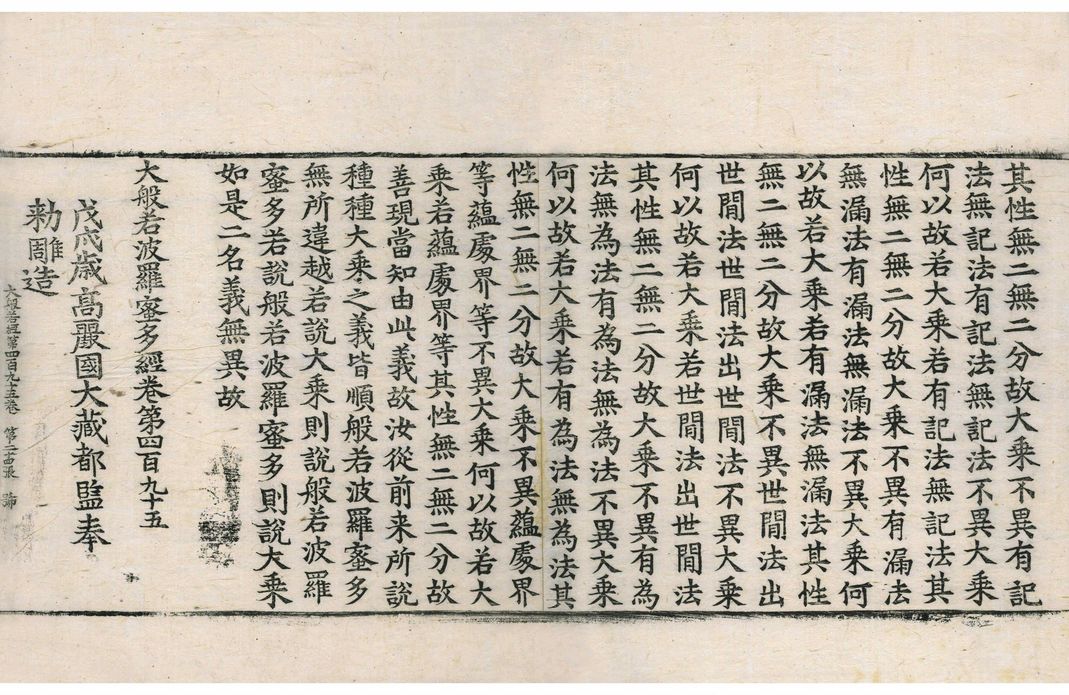 其性無二無二分故大乘不異有記
法無記法有記法無記法不異大乘
何以故若大乘若有記法無記法其
性無二無二分故大乘不異有漏法
無漏法有漏法無漏法不異大乘何
以故若大乘若有漏法無漏法其性
無二無二分故大乘不異世閒法出
世閒法世閒法出世閒法不異大乘
何以故若大乘若世閒法出世閒法
其性無二無二分故大乘不異有為
法無為法有為法無為法不異大乘
何以故若大乘若有為法無為法其
性無二無二分故大乘不異蘊處界
等蘊處界等不異大乘何以故若大
乘若蘊處界等其性無二無二分故
善現當知由此義故汝從前来所說
種種大乘之義皆順般若波羅蜜多
無所違越若說大乘則說般若波羅
蜜多若說般若波羅蜜多則說大乘
如是二名義無異故
大般若波羅蜜多經卷第四百九十五
戊戌歲高麗國大藏都監奉
勑雕造
大般若經第四百九十五卷 第二十四張